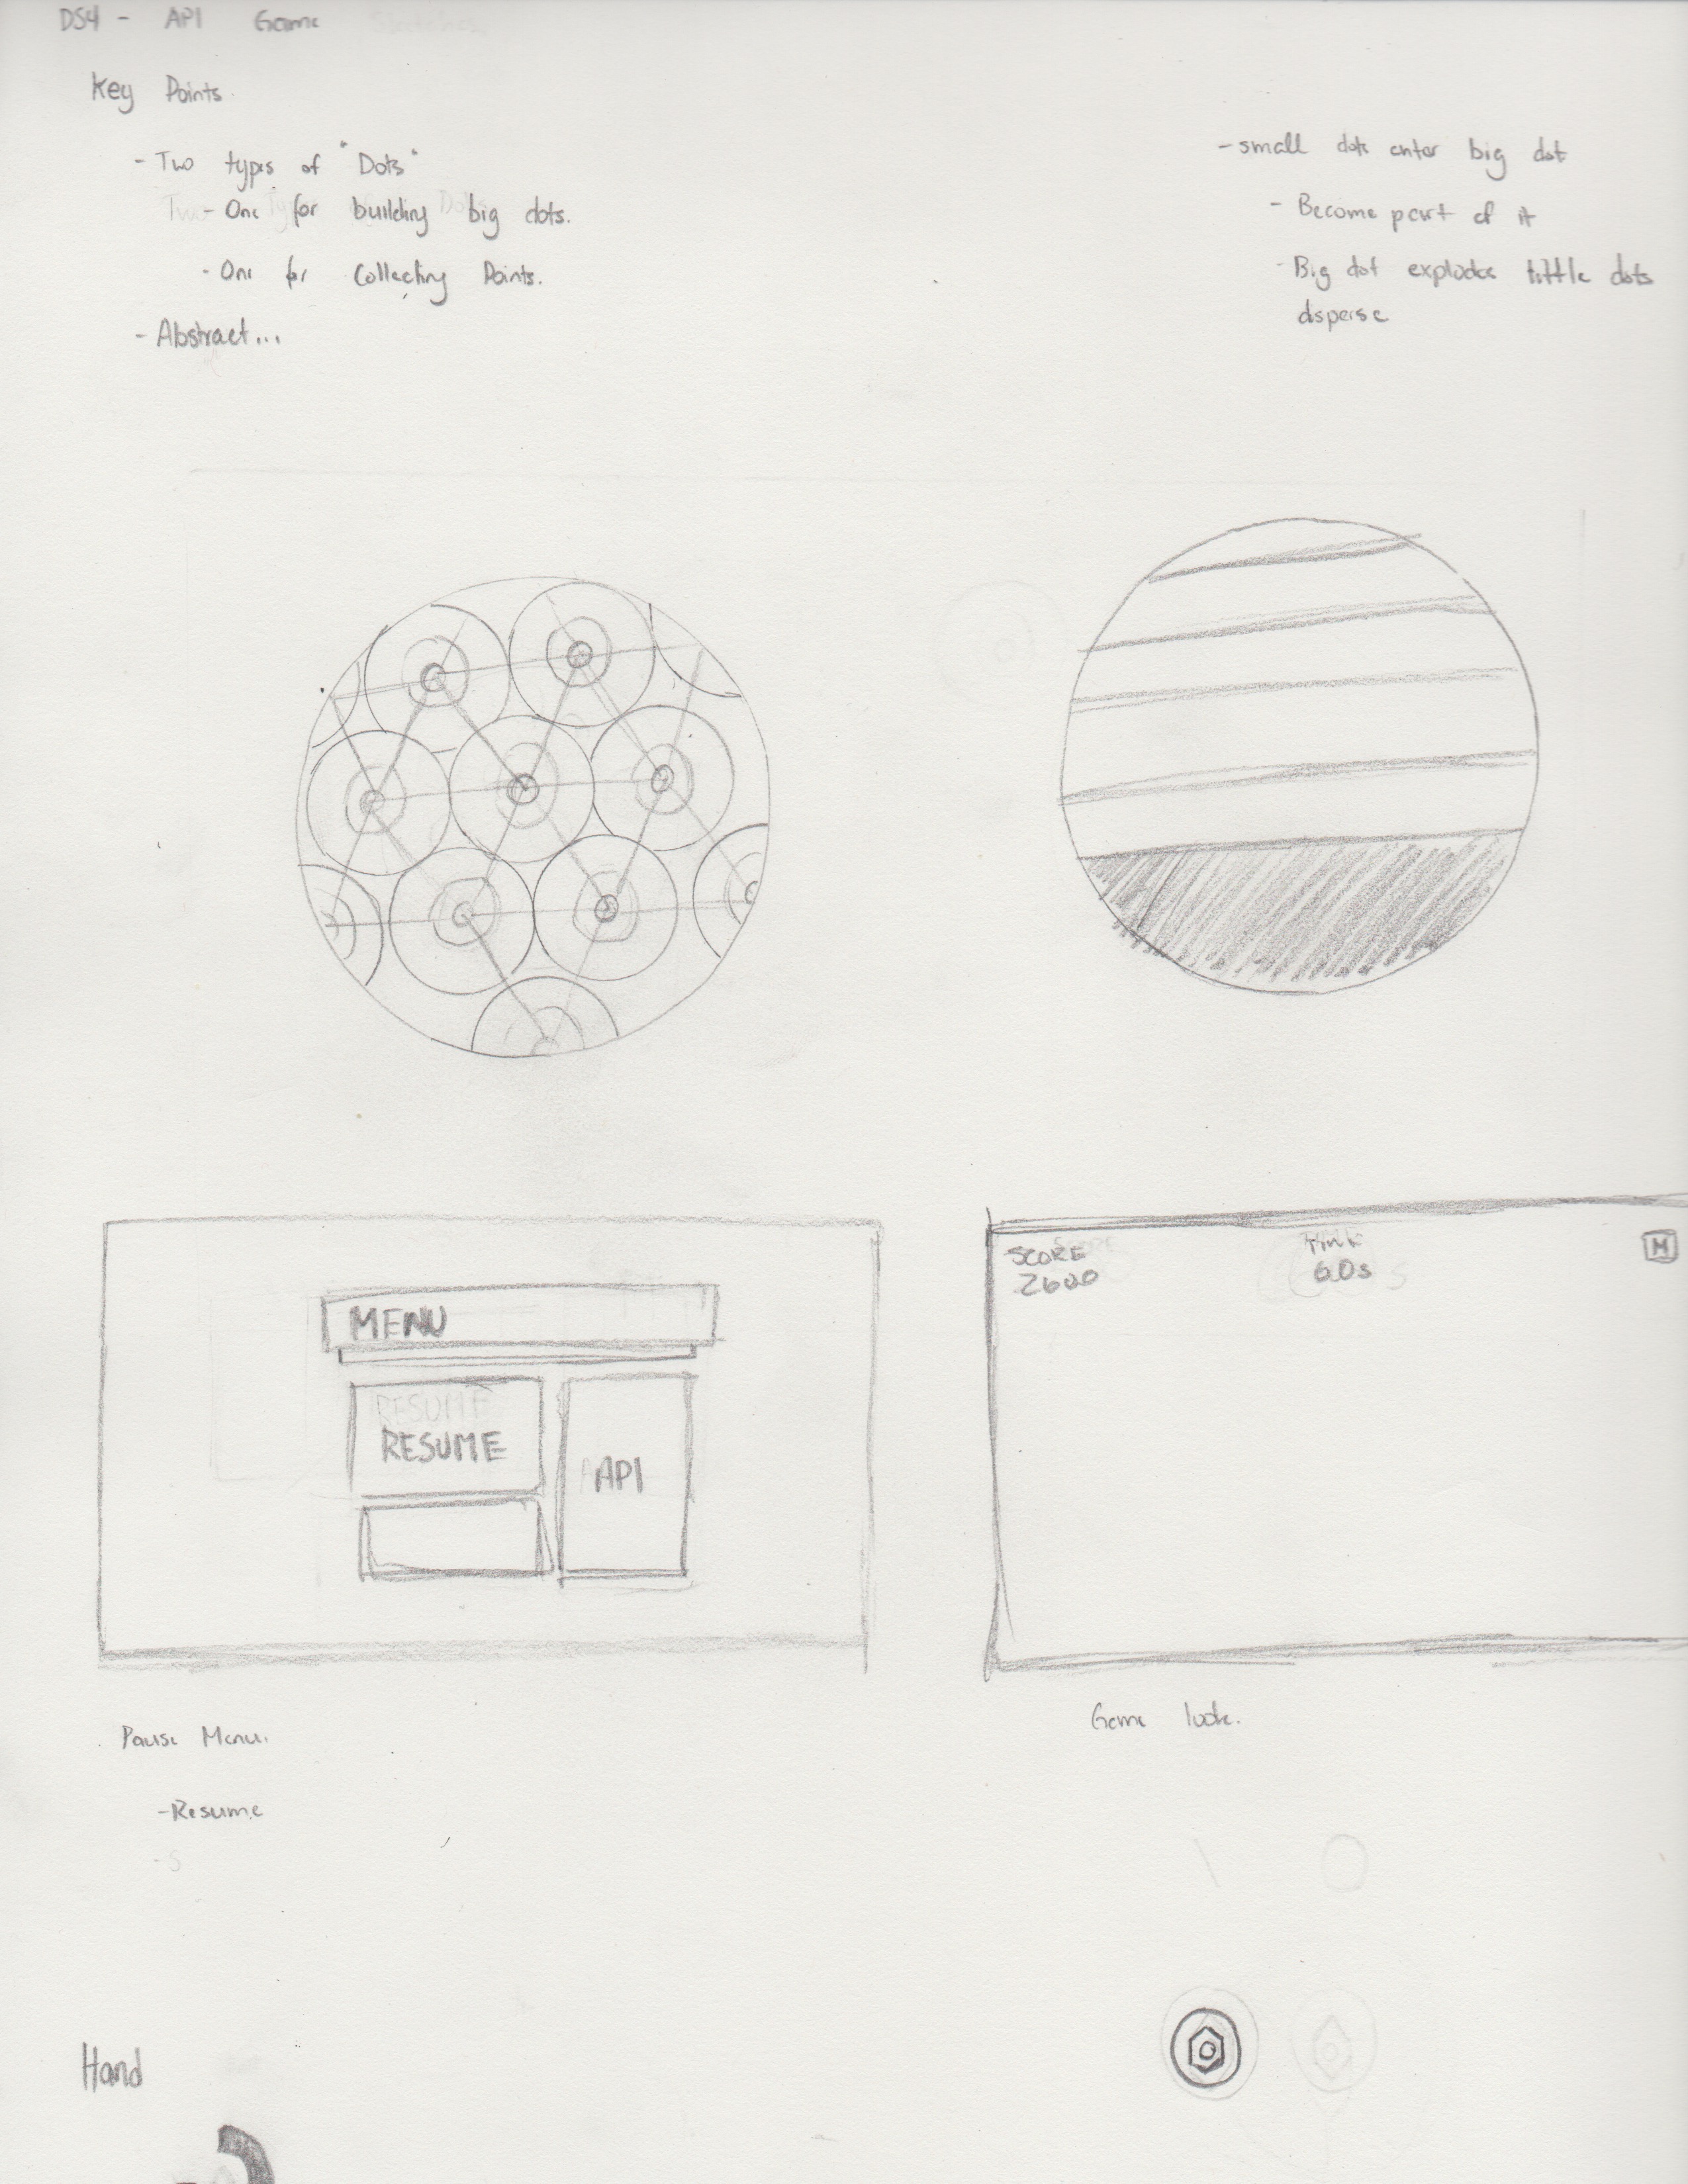 DS4 - API Game Sketches
Key Points.
- Two types of "Dots"
- One for building big dots.
- One for Collecting Points.
- Abstract...
- small dots enter big dot
- Become part of it
- Big dot explodes little dots
disperse
MENU
RESUME
RESUME
API
SCORE
2600
Time
60s
M
Pause Menu.
- Resume
- S
Game look.
Hand